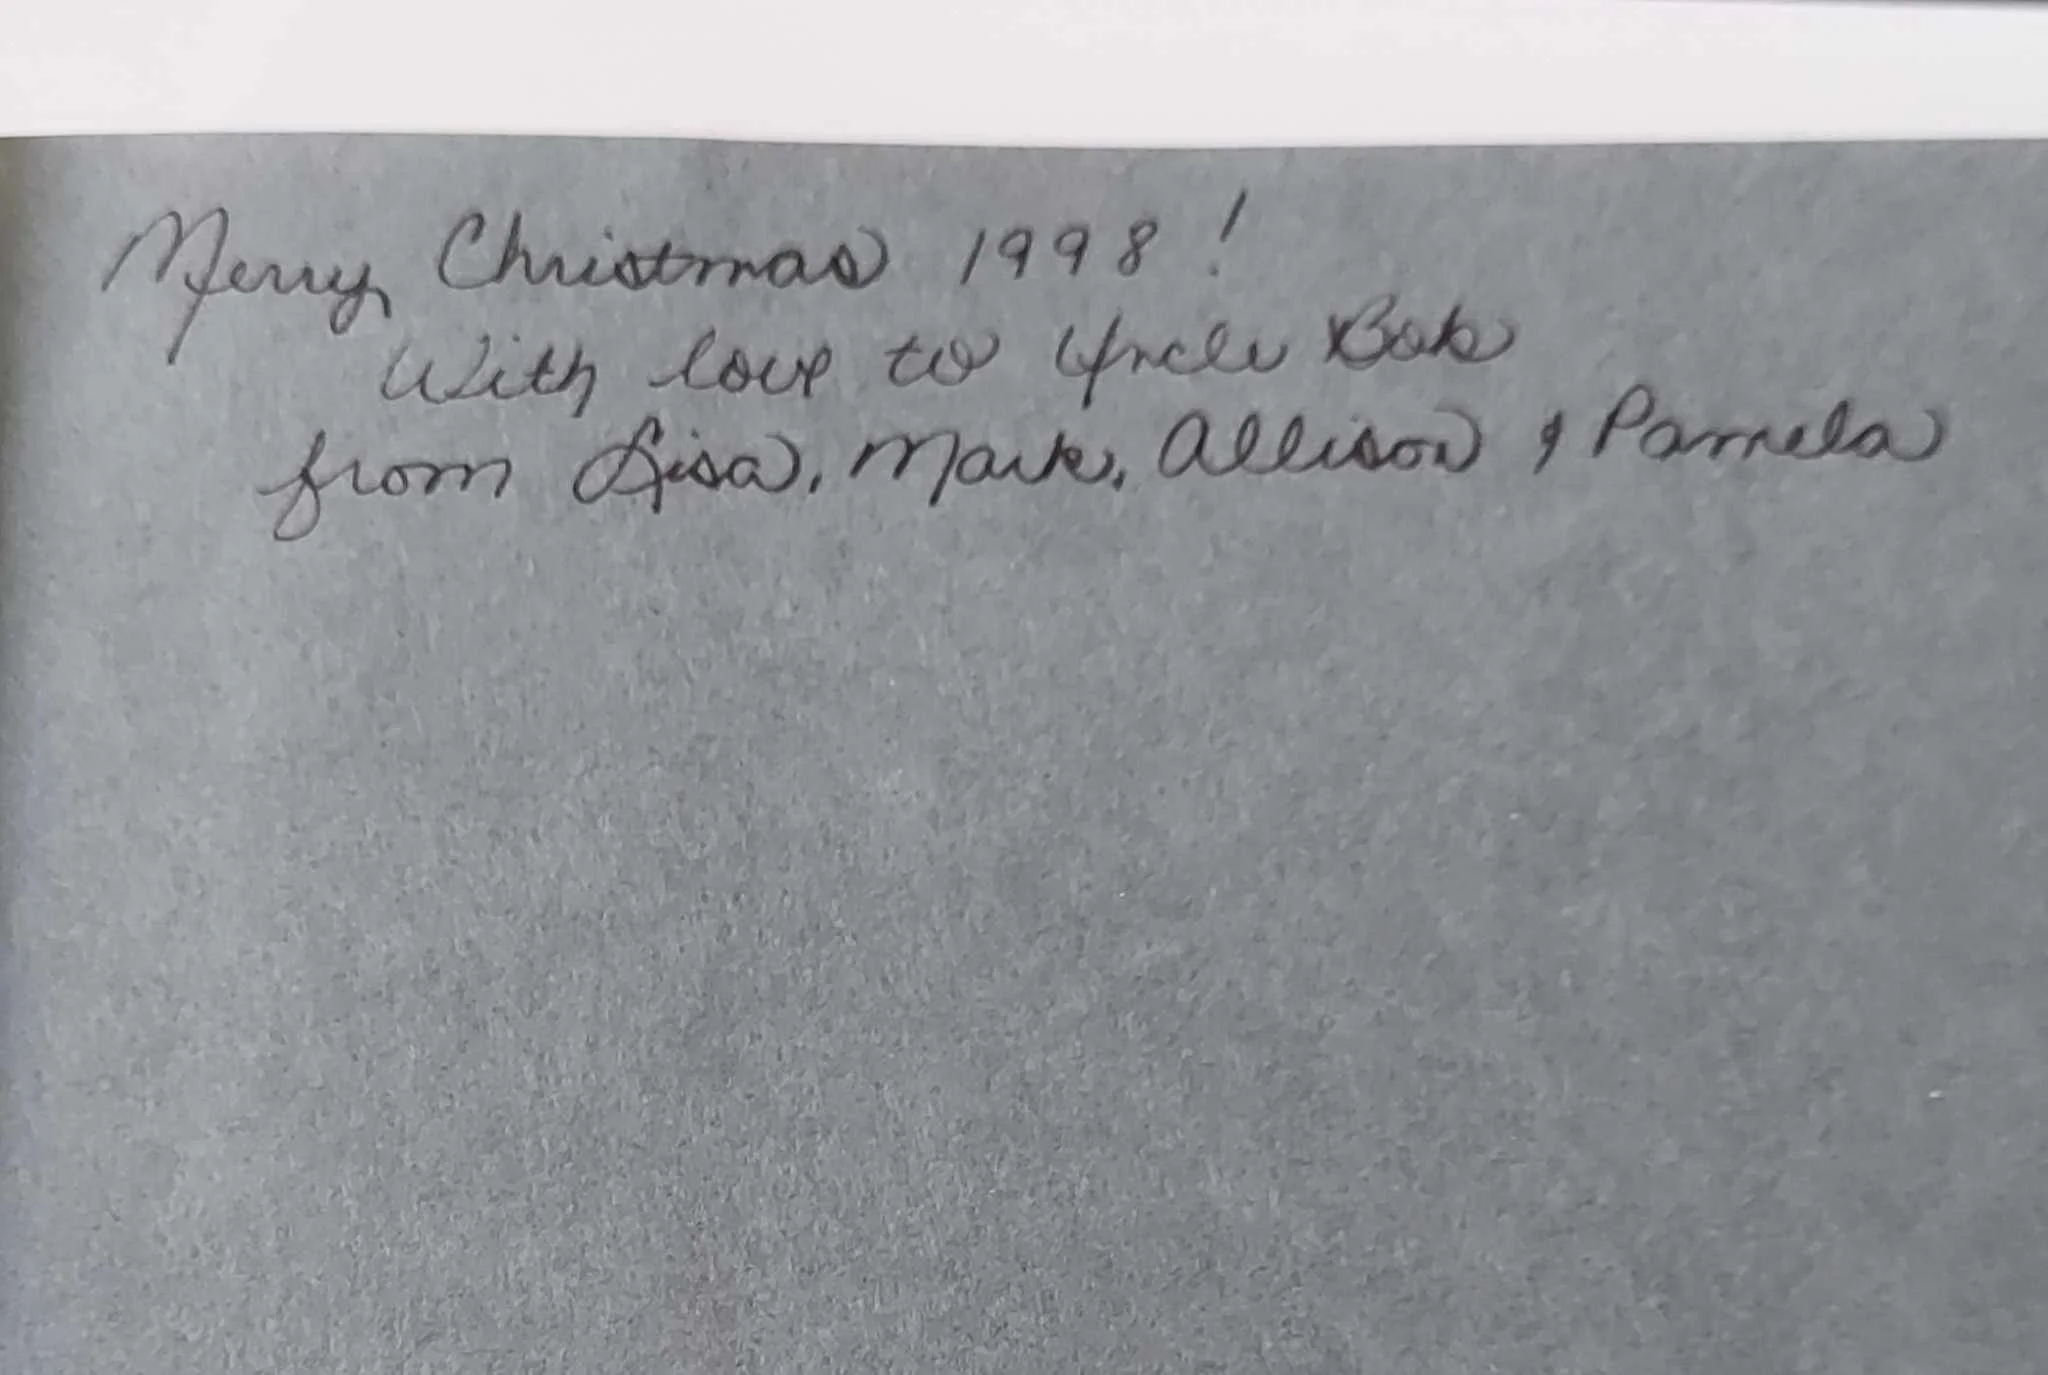 Merry Christmas 1998!
With love to Uncle Bob
from Lisa, Mark, Allison & Pamela